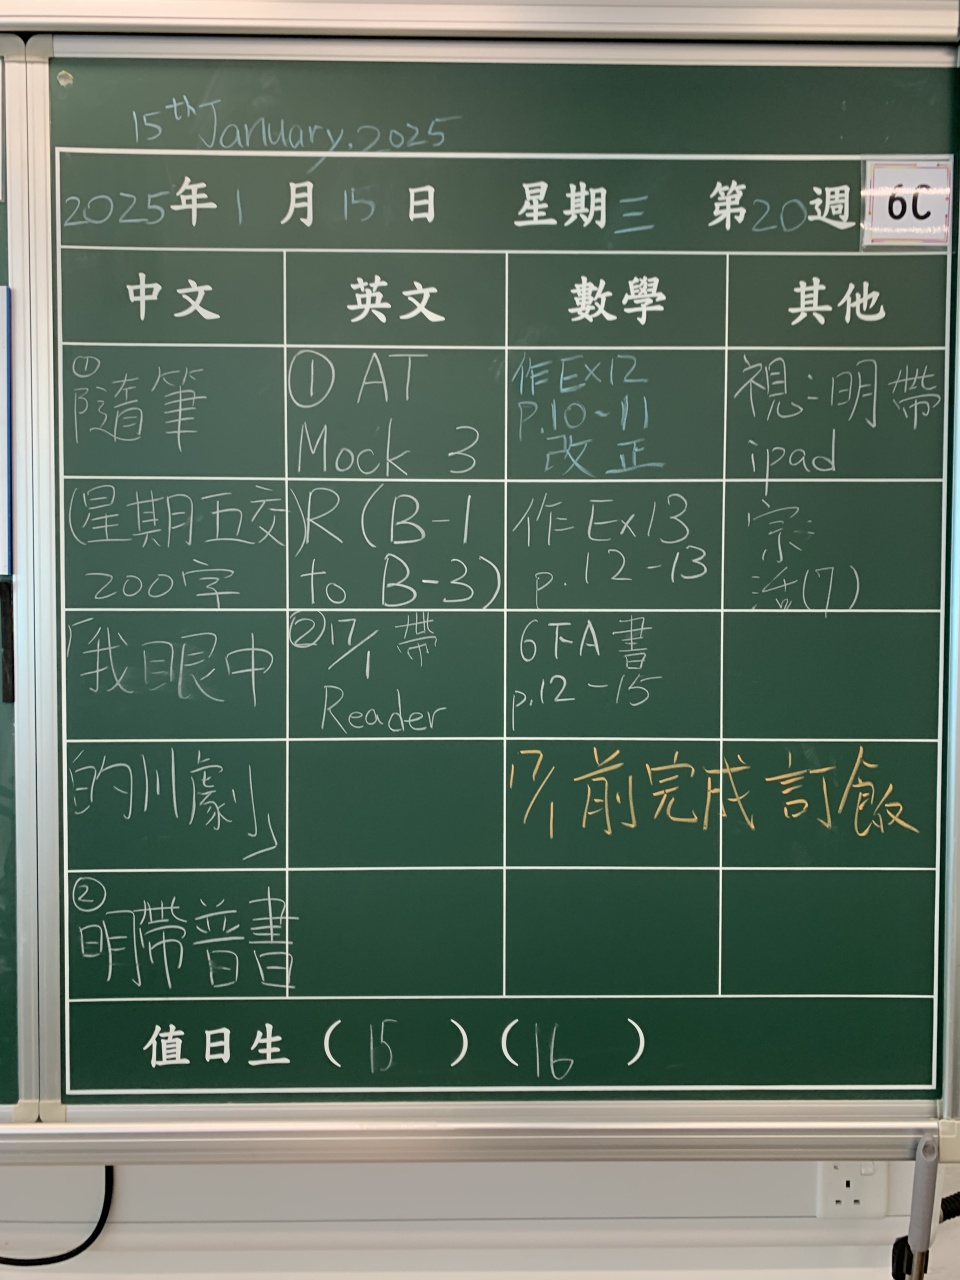 15th January, 2025
2025年1月15日 星期三 第20週 6C
中文 英文 數學 其他
①隨筆
(星期五交)
200字
「我眼中
的川劇」
②明帶普書
① AT
Mock 3
R (B-1
to B-3)
②17/1 帶
Reader
作Ex12
p.10~11
改正
作Ex13
p.12-13
6下A書
p.12-15
視:明帶
ipad
宗:
活(7)
17/1前完成訂飯
值日生(15)(16)